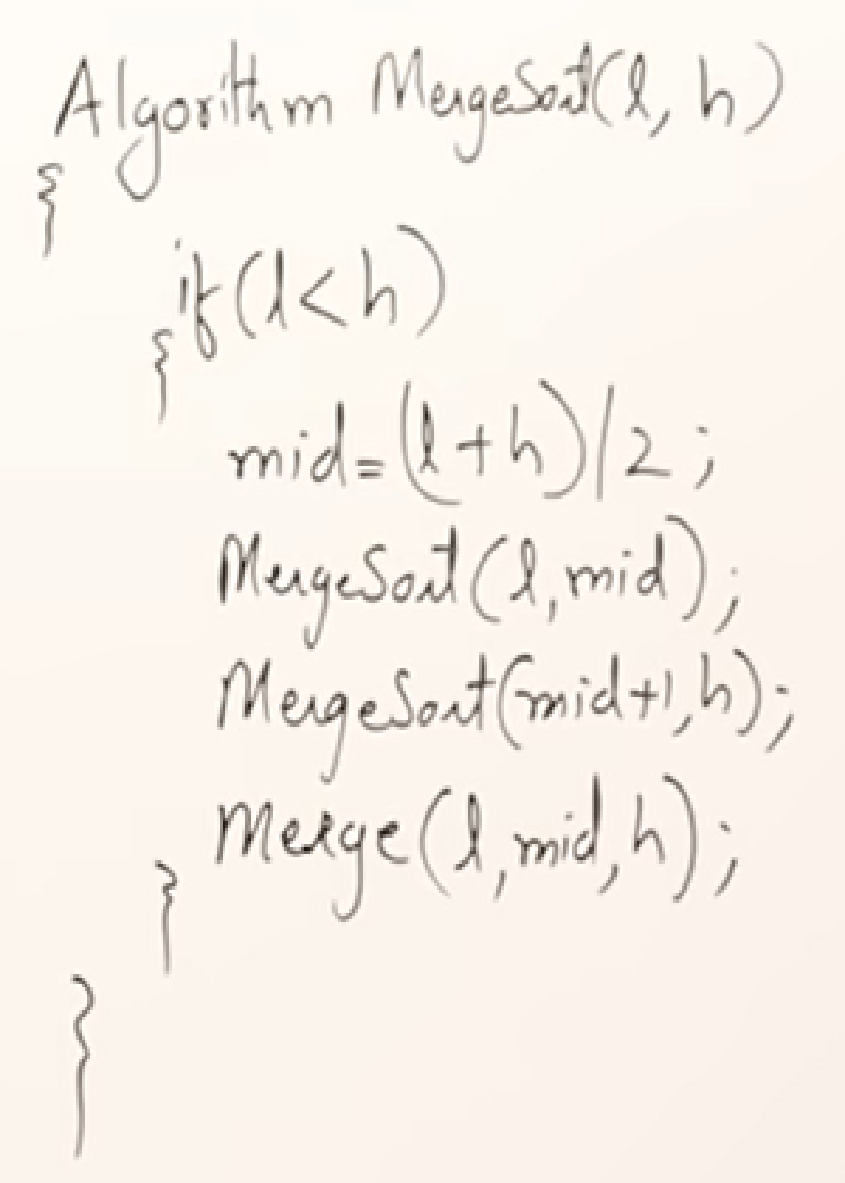 Algorithm MergeSort(l, h)
{
if(l<h)
{
mid=(l+h)/2;
MergeSort(l,mid);
MergeSort(mid+1,h);
Merge(l,mid,h);
}
}